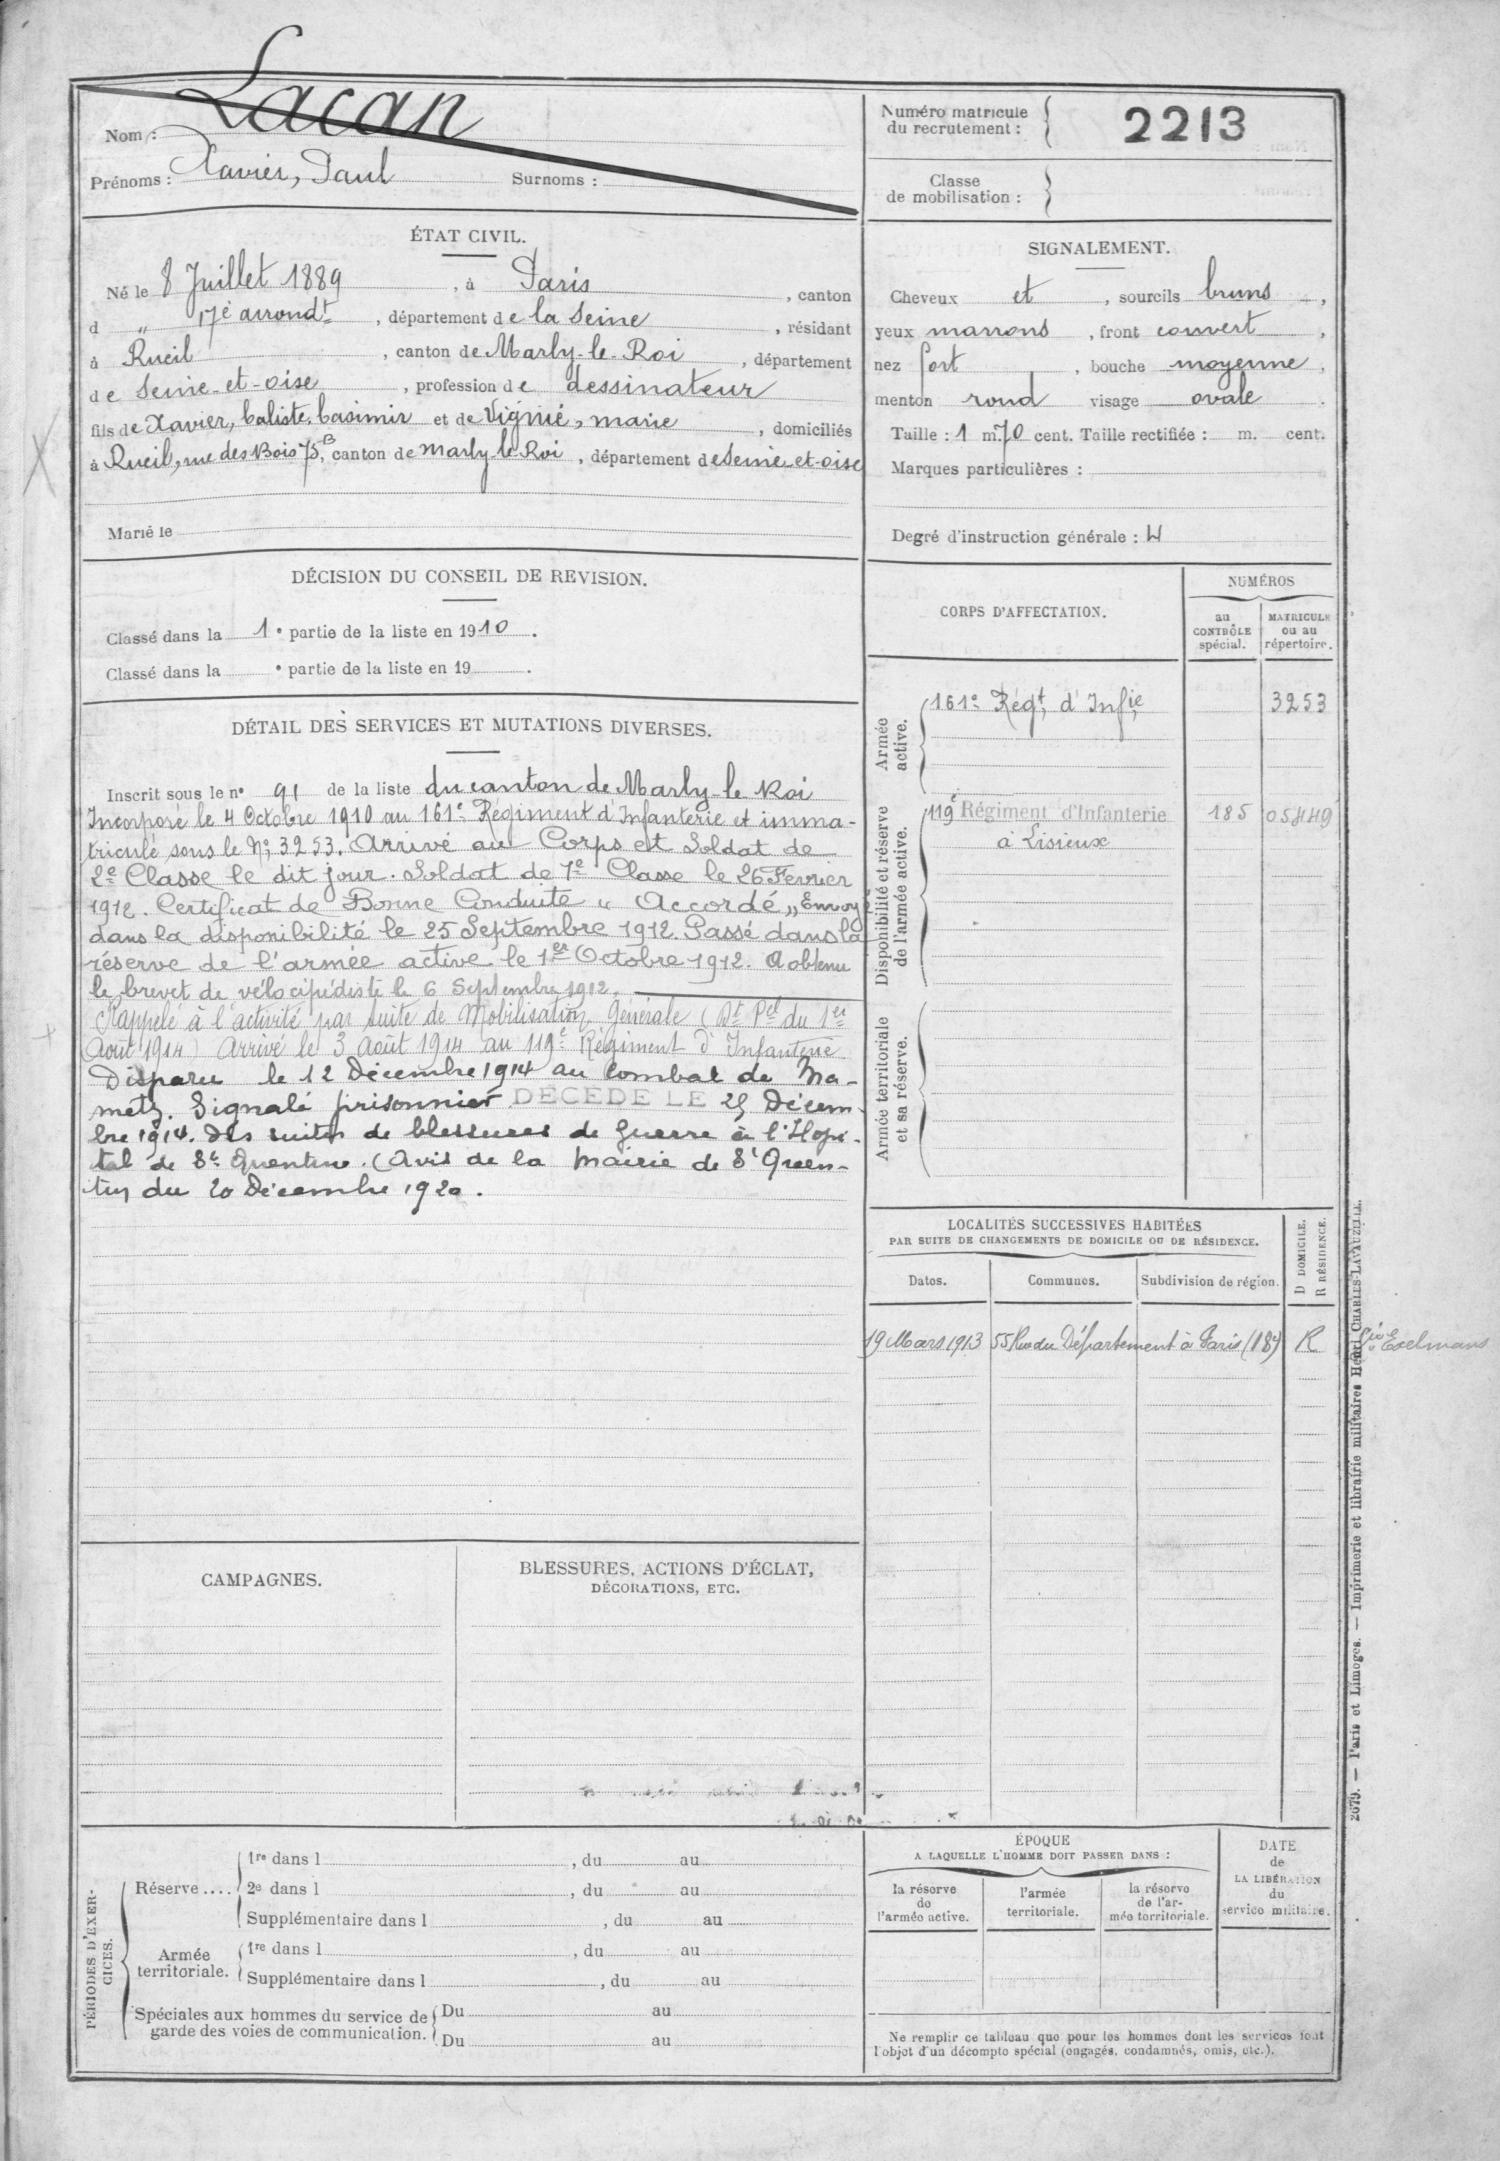 Nom : Lacan
Prénoms : Xavier, Paul Surnoms :
Numéro matricule
du recrutement : 2213
Classe
de mobilisation :
ÉTAT CIVIL.
Né le 8 Juillet 1889, à Paris, canton
d „ 17e arrondt, département de la Seine, résidant
à Rueil, canton de Marly-le-Roi, département
de Seine-et-oise, profession de dessinateur
fils de Xavier, Caliste, Casimir et de Vignié, marie, domiciliés
à Rueil, rue des Bois 75B, canton de Marly-le-Roi, département de Seine-et-oise
Marié le
SIGNALEMENT.
Cheveux et, sourcils bruns,
yeux marrons, front couvert,
nez fort, bouche moyenne,
menton rond visage ovale.
Taille : 1 m. 70 cent. Taille rectifiée : m. cent.
Marques particulières :
Degré d'instruction générale :
DÉCISION DU CONSEIL DE REVISION.
Classé dans la 1e partie de la liste en 1910.
Classé dans la e partie de la liste en 19 .
DÉTAIL DES SERVICES ET MUTATIONS DIVERSES.
Inscrit sous le n° 91 de la liste du canton de Marly-le Roi
Incorporé le 4 Octobre 1910 au 161e Régiment d'Infanterie et imma-
triculé sous le N° 3253. Arrivé au Corps et Soldat de
2e Classe le dit jour. Soldat de 1e Classe le 26 Fevrier
1912. Certificat de Bonne Conduite „ Accordé „ Envoyé
dans la disponibilité le 25 Septembre 1912. Passé dans la
réserve de l'armée active le 1er Octobre 1912. A obtenu
le brevet de vélocipédiste le 6 Septembre 1912.
Rappelé à l'activité par suite de Mobilisation Générale (Dt Pel du 1er
Août 1914) Arrivé le 3 Août 1914 au 119e Régiment d'Infanterie
Disparu le 12 Décembre 1914 au Combat de Ma-
metz. Signalé prisonnier. DÉCÉDÉ LE 25 Décem-
bre 1914. des suites de blessures de guerre à l'Hopi-
tal de St Quentin. (Avis de la Mairie de St Quen-
tin du 20 Décembre 1920.
CORPS D'AFFECTATION.
NUMÉROS
au
CONTRÔLE
spécial.
MATRICULE
ou au
répertoire.
Armée
active.
161e Régt d'Infie 3253
Disponibilité et réserve
de l'armée active.
119e Régiment d'Infanterie 185 05449
à Lisieux
Armée territoriale
et sa réserve.
LOCALITÉS SUCCESSIVES HABITÉES
PAR SUITE DE CHANGEMENTS DE DOMICILE OU DE RÉSIDENCE.
Dates. Communes. Subdivision de région.
D DOMICILE.
R RÉSIDENCE.
19 Mars 1913 55 Rue du Département à Paris (18e) R
Exelmans
CAMPAGNES.
BLESSURES, ACTIONS D'ÉCLAT,
DÉCORATIONS, ETC.
PÉRIODES D'EXER-
CICES.
Réserve....
1re dans l , du au
2e dans l , du au
Supplémentaire dans l , du au
Armée
territoriale.
1re dans l , du au
Supplémentaire dans l , du au
Spéciales aux hommes du service de
garde des voies de communication.
Du au
Du au
ÉPOQUE
A LAQUELLE L'HOMME DOIT PASSER DANS :
la réserve
de
l'armée active.
l'armée
territoriale.
la réserve
de l'ar-
mée territoriale.
DATE
de
LA LIBÉRATION
du
service militaire.
Ne remplir ce tableau que pour les hommes dont les services font
l'objet d'un décompte spécial (engagés, condamnés, omis, etc.).
2679. — Paris et Limoges. — Imprimerie et librairie militaires Henri CHARLES-LAVAUZELLE.